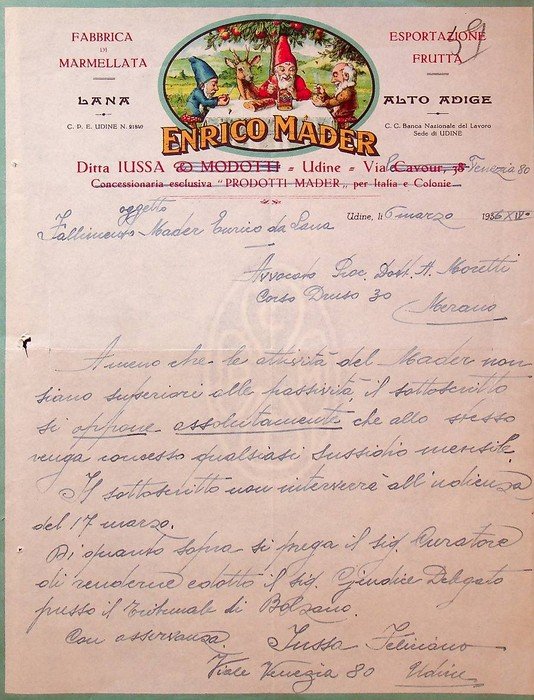 39
FABBRICA
DI
MARMELLATA
ESPORTAZIONE
FRUTTA
LANA
ALTO ADIGE
C. P. E. UDINE N. 21840
C. C. Banca Nazionale del Lavoro
Sede di UDINE
ENRICO MADER
Ditta IUSSA & MODOTTI - Udine - Via Cavour, 38 Venezia 80
Concessionaria esclusiva "PRODOTTI MADER" per Italia e Colonie
oggetto
Udine, li 6 marzo 1936 XIV°
Fallimento Mader Enrico da Lana
Avvocato Proc. Dott. A. Moretti
Corso Druso 30
Merano
Ameno che le attività del Mader non
siano superiori alle passività, il sottoscritto
si oppone assolutamente che allo stesso
venga concesso qualsiasi sussidio mensile.
Il sottoscritto non interverrà all'udienza
del 17 marzo.
Di quanto sopra si prega il sig. Curatore
di renderne edotto il sig. Giudice Delegato
presso il Tribunale di Bolzano.
Con osservanza.
Iussa Feliciano
Viale Venezia 80 Udine